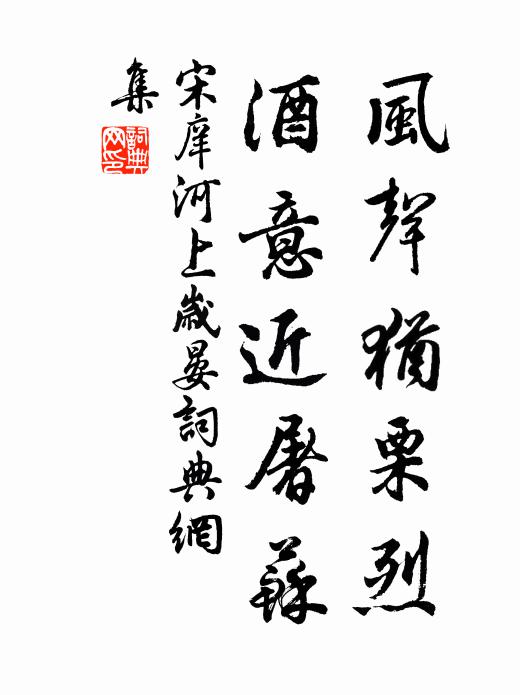 風聲猶栗烈
酒意近屠蘇
宋庠河上歲晏詞典網
集
詞典網印